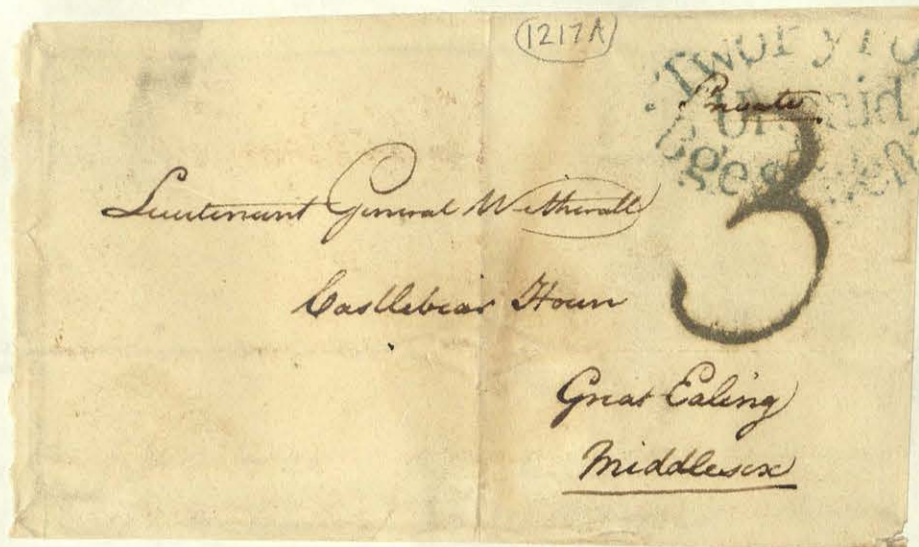 1217A
Two Py Po
Unpaid
Private
3
Lieutenant General Wetherall
Castlebear House
Great Ealing
Middlesex